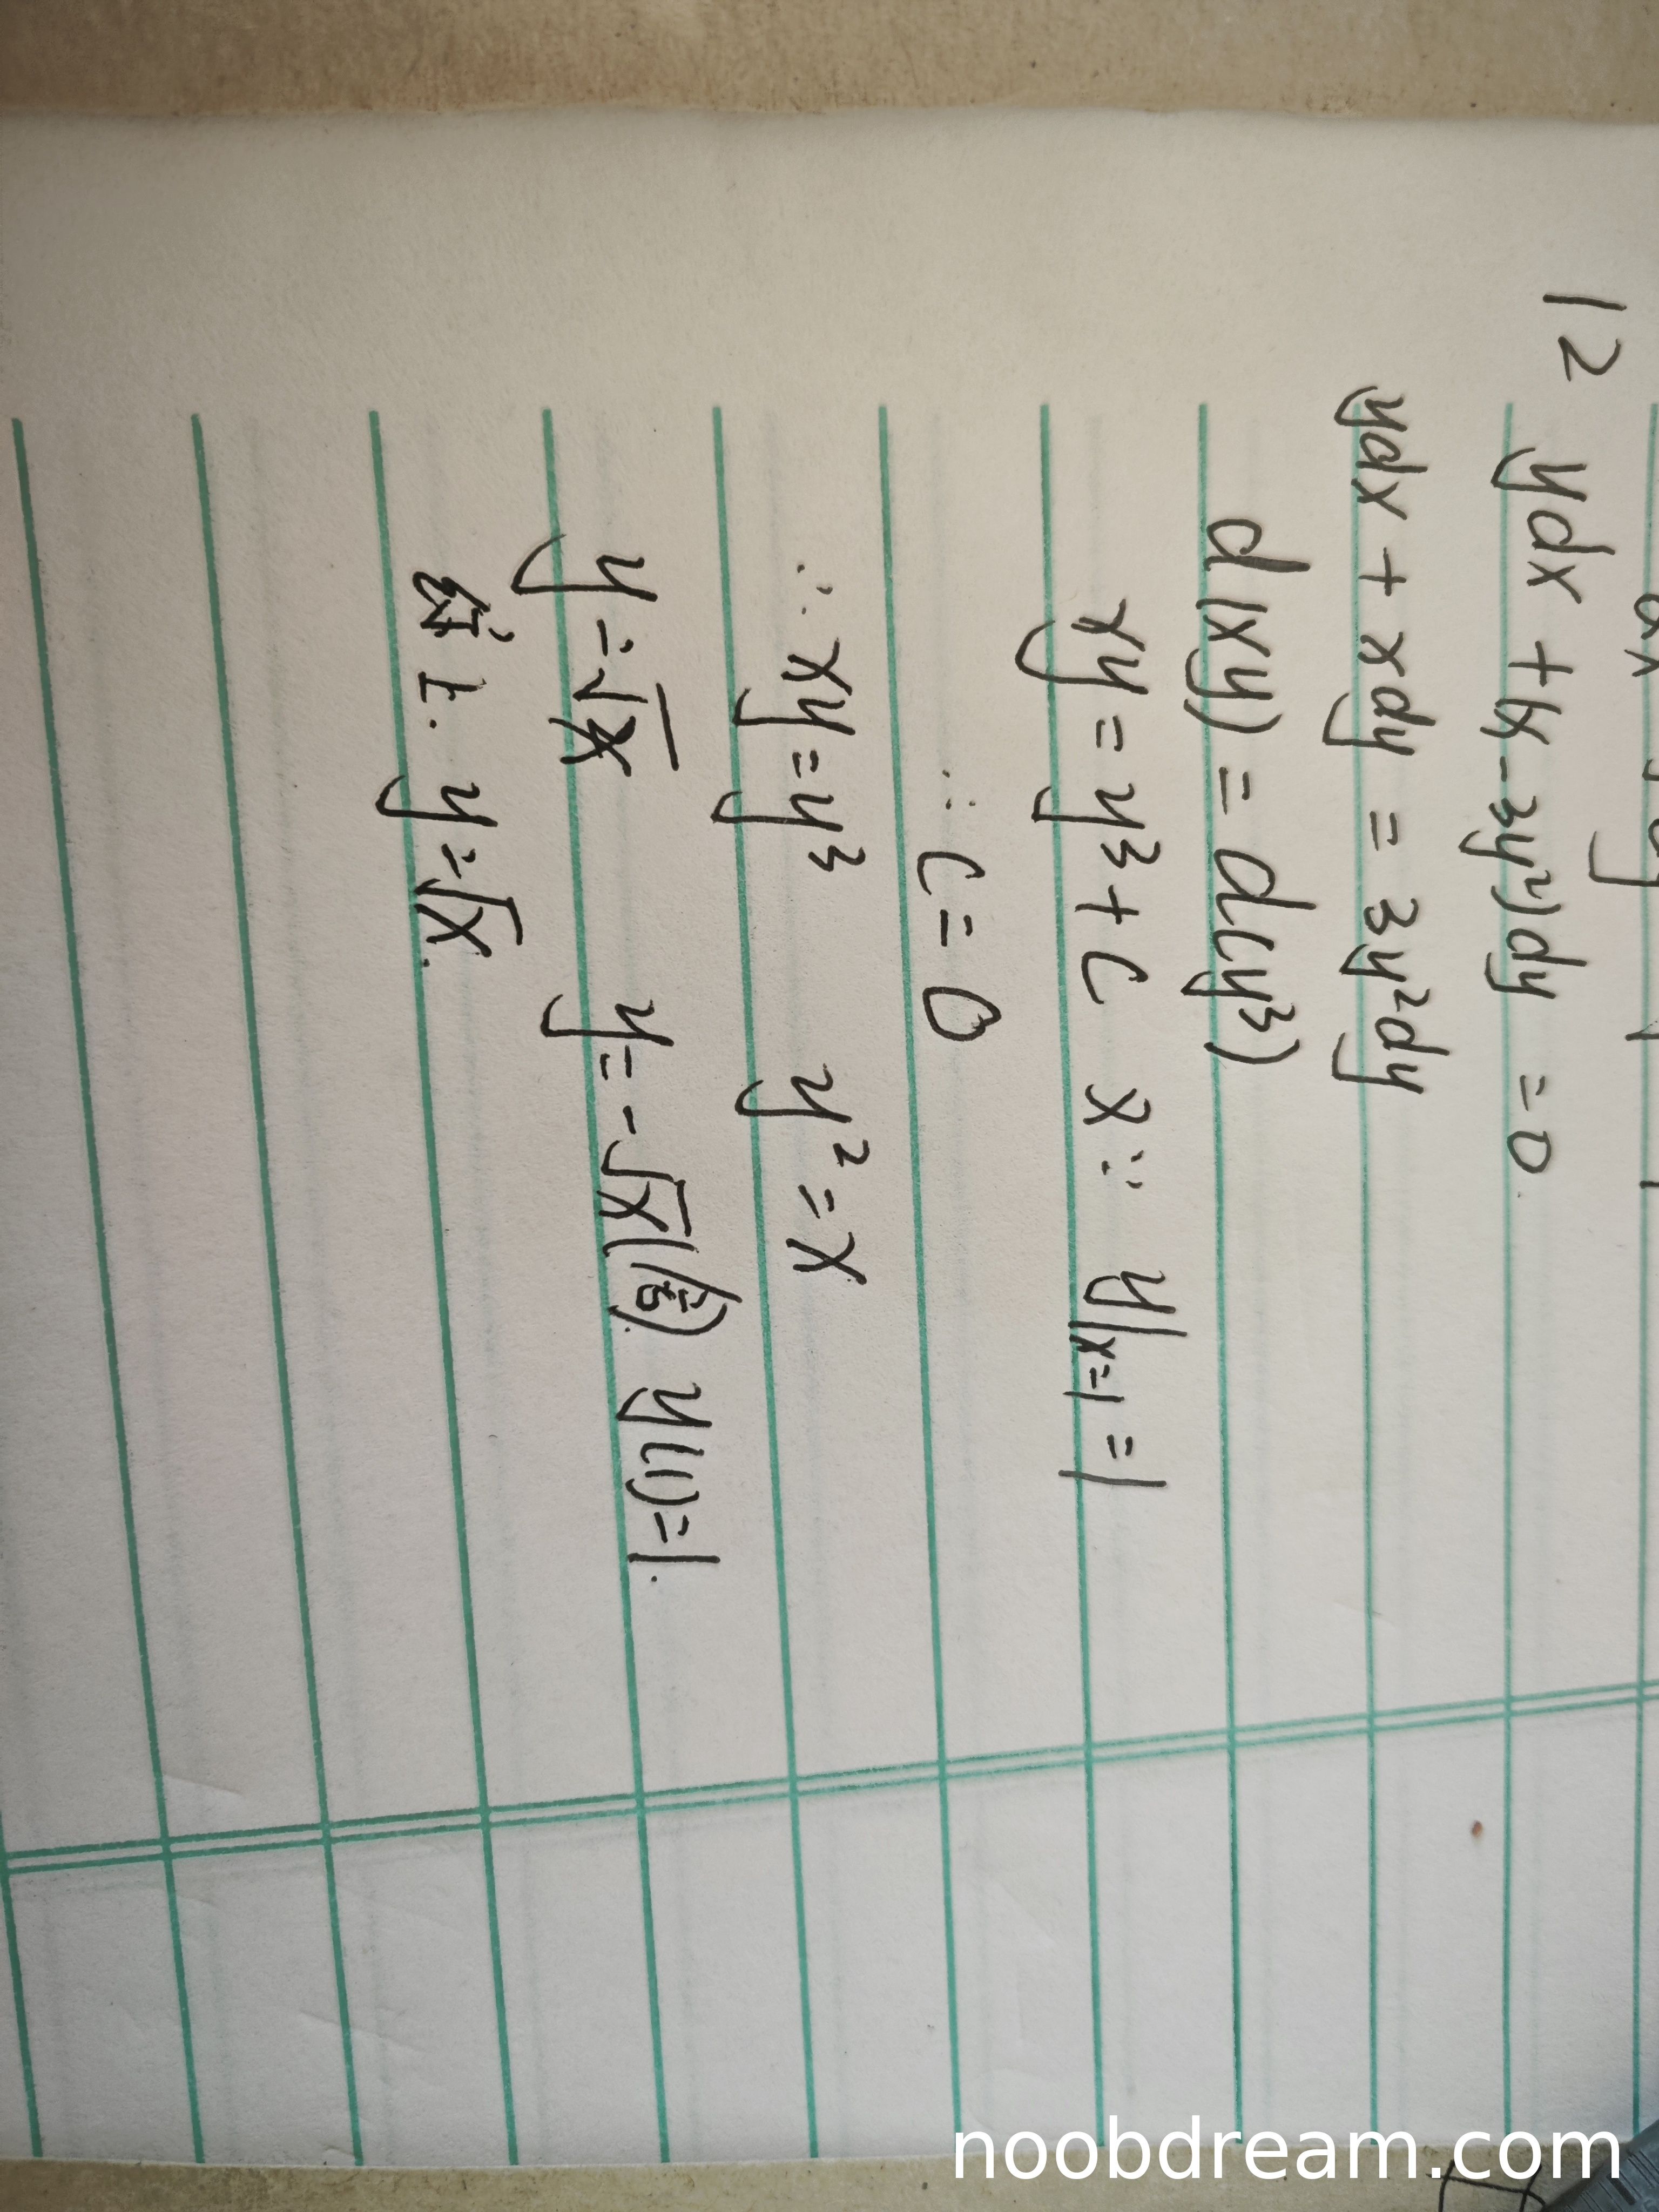 12 ydx + (x - 3y²)dy = 0.
ydx + xdy = 3y²dy
d(xy) = d(y³)
xy = y³ + C x∵ y|x=1 = 1
∴ C = 0
∴ xy = y³ y² = x
y = √x y = -√x (舍) y(1) = 1.
综上. y = √x.
noobdream.com